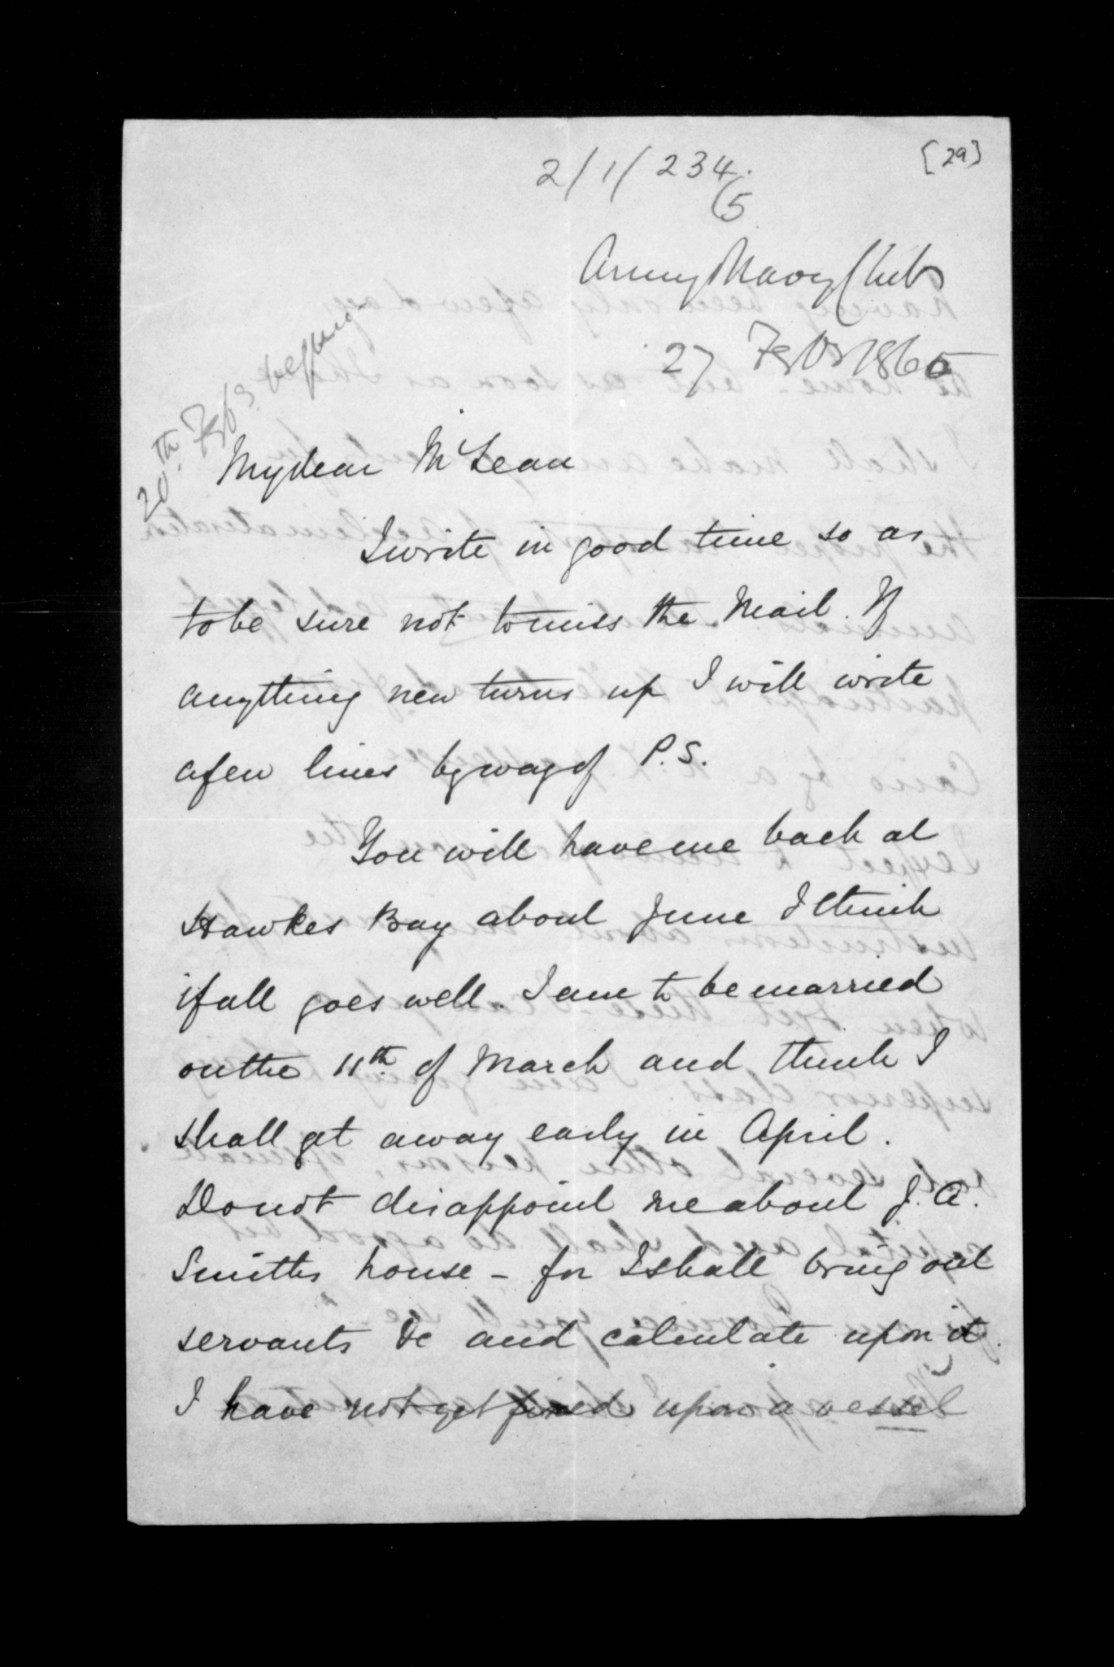 [29]
2/1/234.
(5
Army Navy Club
27 Feby 1865
20th Feby
My dear McLean
I write in good time so as
to be sure not to miss the Mail. If
anything new turns up I will write
a few lines by way of P.S.
You will have me back at
Hawkes Bay about June I think
if all goes well. I am to be married
on the 11th of March and think I
shall get away early in April.
Do not disappoint me about J. A.
Smiths house - for I shall bring out
servants &c and calculate upon it.
I have not yet fixed upon a vessel